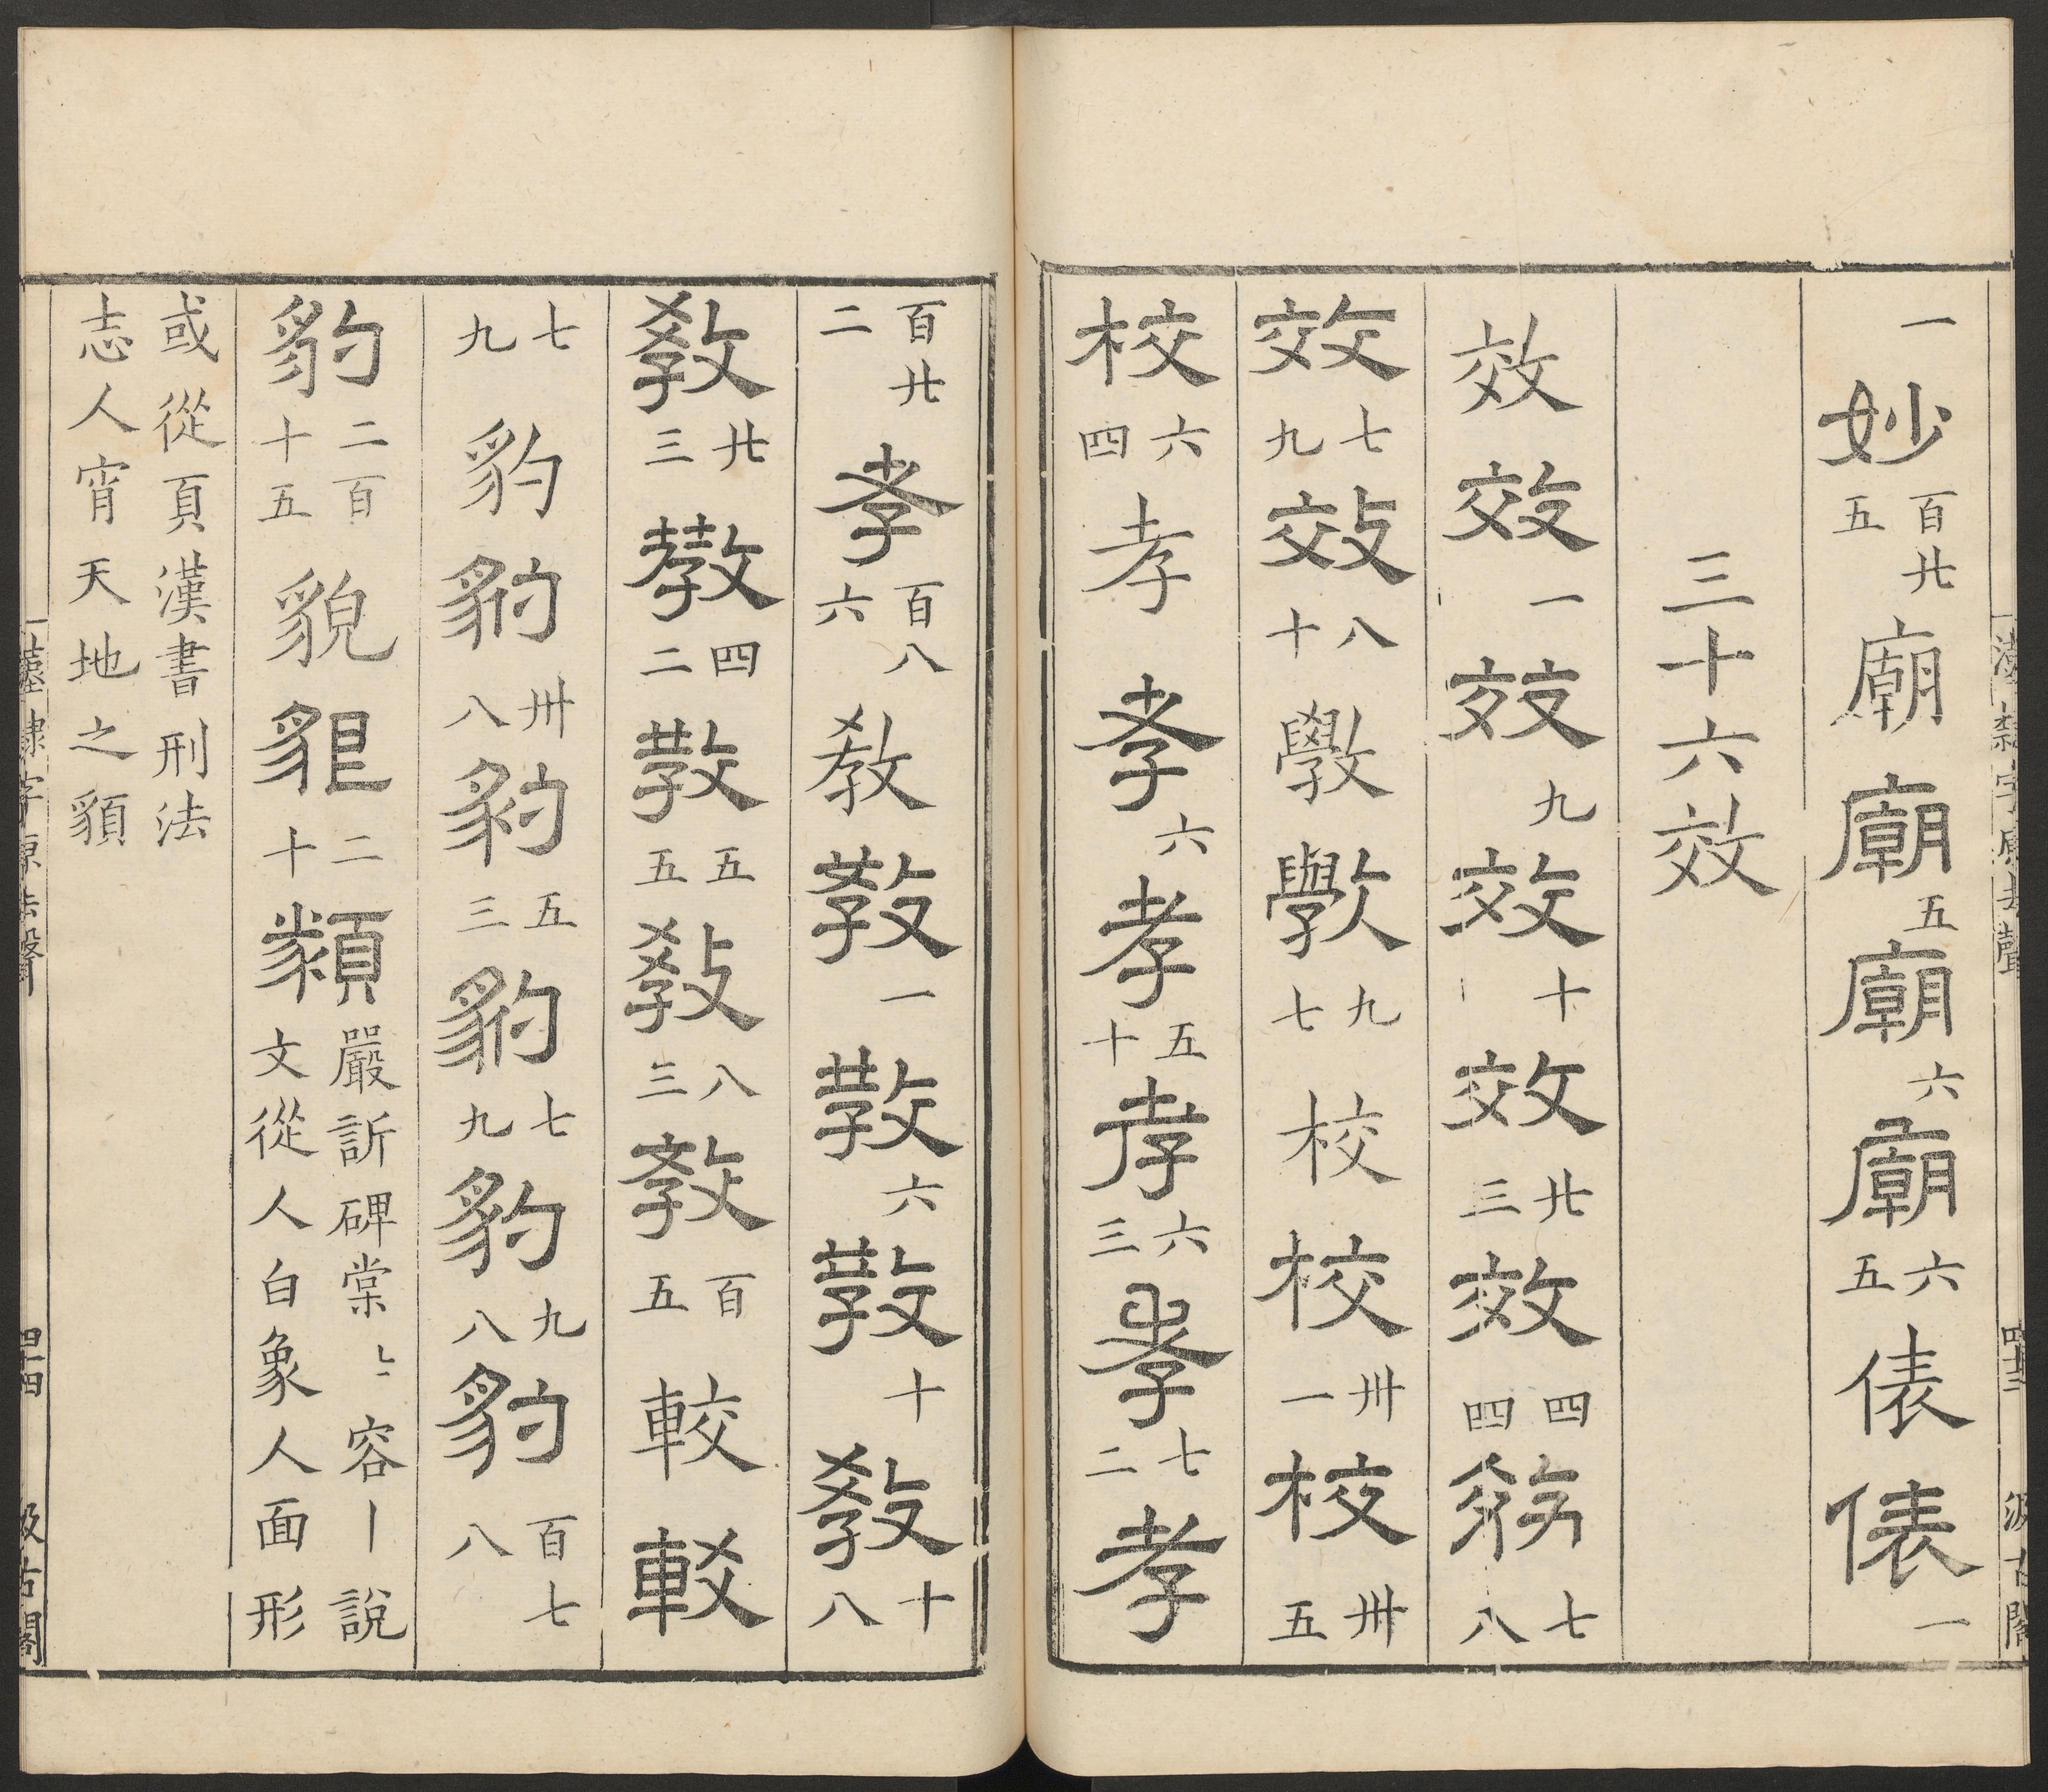 一妙百廿五廟廟五廟六廟六五俵俵一
三十六效
效效一效九效十效廿三效四四效七八
效七九效八十斆斆九七校校卅一校卅五
校六四孝孝六孝五十孝六三孝七二孝
百廿二孝百八六教教一教六教十教十八
教廿三教四二教五五教八三教百五較較
七九豹豹卅八豹五三豹七九豹九八豹百七八
豹二百十五貌貇二十䫉嚴訢碑棠〻容丨說文從人白象人面形
或從頁漢書刑法志人宵天地之䫉
漢隸字原去聲 四十三 汲古閣
漢隸字原去聲 四十四 汲古閣